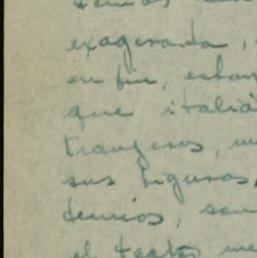 exagerada,
en fin, estan
que italia
trangeros,
sus figuras,
demios, son
el teatro me